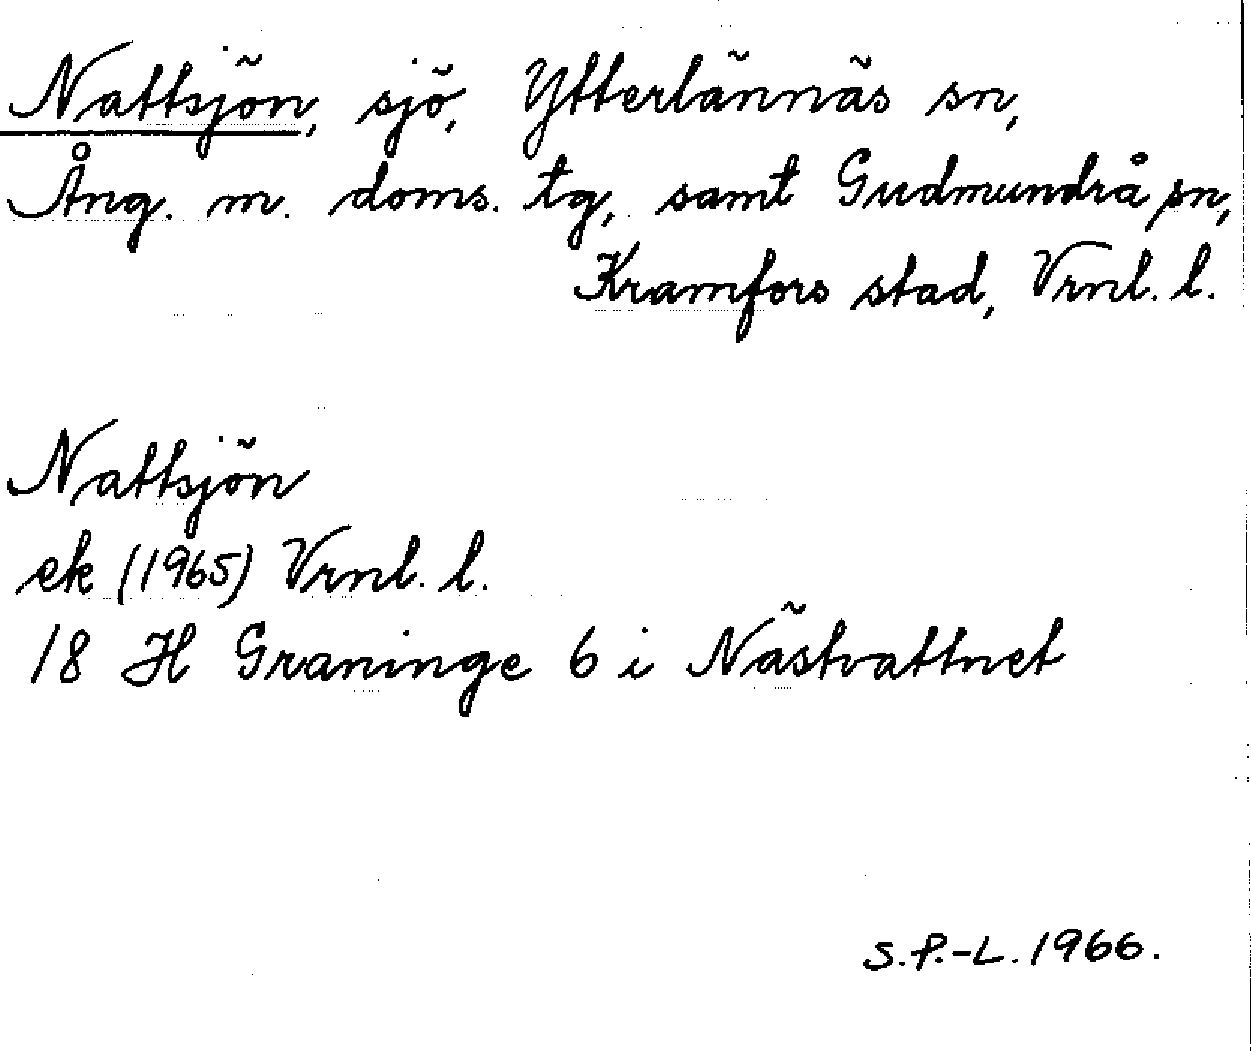 Nattsjön, sjö, Ytterlännäs sn,
Ång. m. doms. tg, samt Gudmundrå sn,
Kramfors stad, Vrnl. l.
Nattsjön
ek (1965) Vrnl. l.
18 H Graninge 6 i Nästvattnet
S.P.-L. 1966.